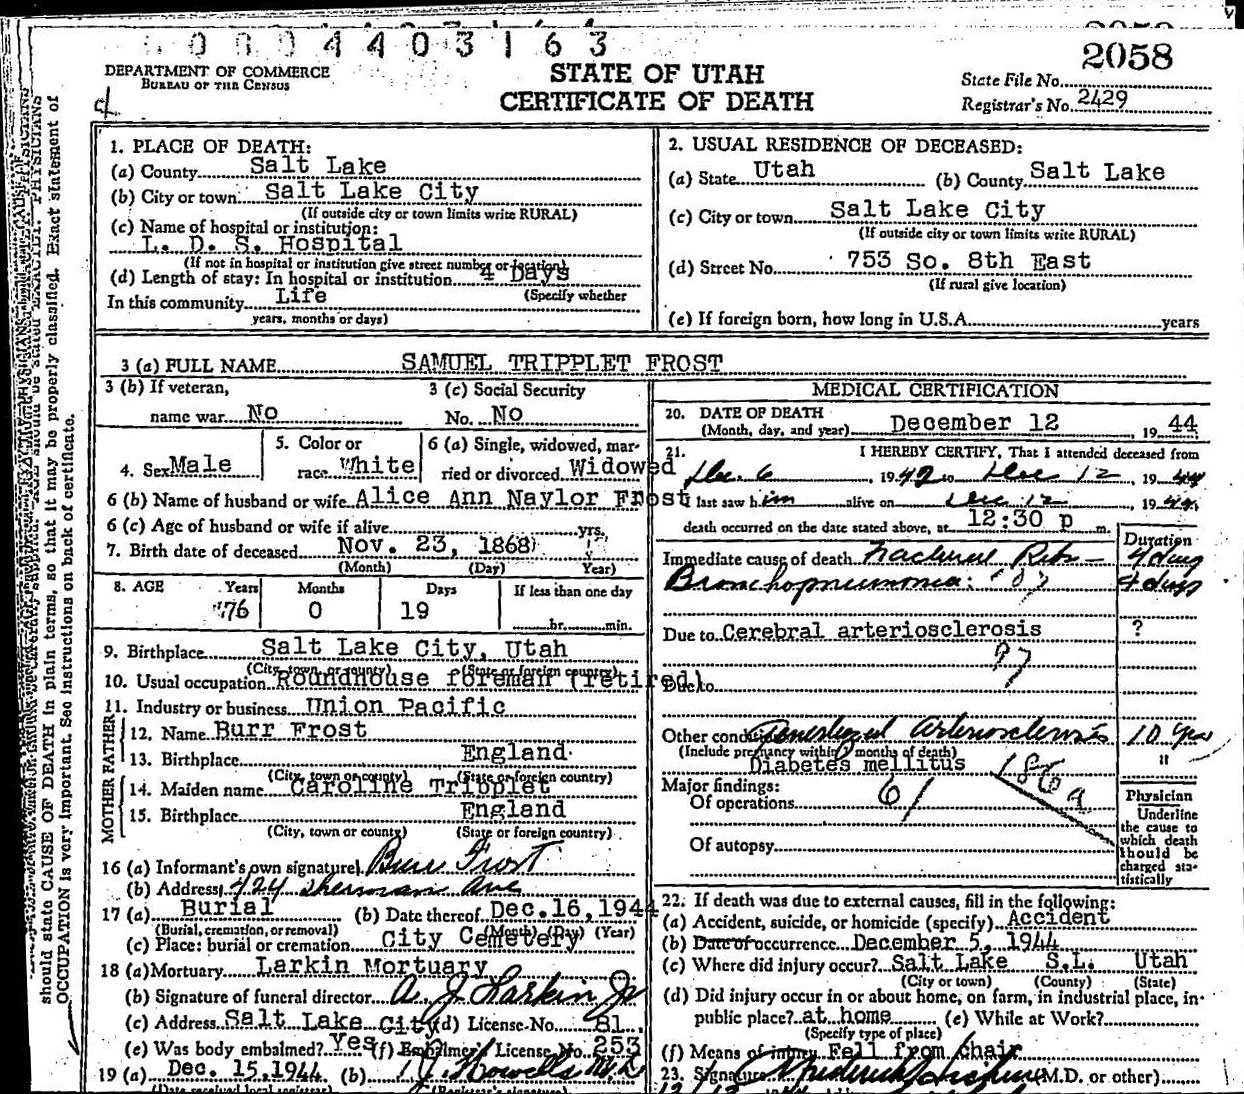 0 0 0 4 4 0 3 1 6 3
2058
DEPARTMENT OF COMMERCE
BUREAU OF THE CENSUS
STATE OF UTAH
CERTIFICATE OF DEATH
State File No.
Registrar's No. 2429
1. PLACE OF DEATH:
(a) County Salt Lake
(b) City or town Salt Lake City
(If outside city or town limits write RURAL)
(c) Name of hospital or institution:
L. D. S. Hospital
(If not in hospital or institution give street number or location)
(d) Length of stay: In hospital or institution 4 Days
(Specify whether
In this community Life
years, months or days)
2. USUAL RESIDENCE OF DECEASED:
(a) State Utah (b) County Salt Lake
(c) City or town Salt Lake City
(If outside city or town limits write RURAL)
(d) Street No. 753 So. 8th East
(If rural give location)
(e) If foreign born, how long in U.S.A. years
3 (a) FULL NAME SAMUEL TRIPPLET FROST
3 (b) If veteran,
name war No
3 (c) Social Security
No. No
4. Sex Male
5. Color or
race White
6 (a) Single, widowed, mar-
ried or divorced Widowed
6 (b) Name of husband or wife Alice Ann Naylor Frost
6 (c) Age of husband or wife if alive yrs.
7. Birth date of deceased Nov. 23, 1868
(Month) (Day) Year)
8. AGE Years Months Days If less than one day
76 0 19 hr. min.
9. Birthplace Salt Lake City, Utah
(City, town or county) (State or foreign country)
10. Usual occupation Roundhouse foreman (retired)
11. Industry or business Union Pacific
FATHER
12. Name Burr Frost
13. Birthplace England
(City, town or county) (State or foreign country)
MOTHER
14. Maiden name Caroline Tripplet
15. Birthplace England
(City, town or county) (State or foreign country)
16 (a) Informant's own signature Burr Frost
(b) Address 724 Sherman Ave
17 (a) Burial (b) Date thereof Dec. 16, 1944
(Burial, cremation, or removal) (Month) (Day) (Year)
(c) Place: burial or cremation City Cemetery
18 (a) Mortuary Larkin Mortuary
(b) Signature of funeral director A. J. Larkin Jr
(c) Address Salt Lake City (d) License No. 81
(e) Was body embalmed? Yes (f) Embalmer's License No. 253
19 (a) Dec. 15, 1944 (b) Howells
(Date received local registrar) (Registrar's signature)
MEDICAL CERTIFICATION
20. DATE OF DEATH
(Month, day, and year) December 12, 19 44
21. I HEREBY CERTIFY, That I attended deceased from
Dec. 6, 19 to Dec 12, 19 44
I last saw him alive on Dec 12, 1944,
death occurred on the date stated above, at 12:30 p m.
Duration
Immediate cause of death Fractured Ribs - 4 days
Bronchopneumonia: 107 4 days
Due to Cerebral arteriosclerosis ?
97
Due to
Other conditions Generalized arteriosclerosis 10 year
(Include pregnancy within 3 months of death)
Diabetes mellitus "
186a
Major findings:
Of operations 61
Of autopsy
Physician
Underline
the cause to
which death
should be
charged sta-
tistically
22. If death was due to external causes, fill in the following:
(a) Accident, suicide, or homicide (specify) Accident
(b) Date of occurrence December 5, 1944
(c) Where did injury occur? Salt Lake S.L. Utah
(City or town) (County) (State)
(d) Did injury occur in or about home, on farm, in industrial place, in
public place? at home (e) While at Work?
(Specify type of place)
(f) Means of injury Fell from chair
23. Signature (M.D. or other)
should state CAUSE OF DEATH in plain terms, so that it may be properly classified. Exact statement of
OCCUPATION is very important. See instructions on back of certificate.